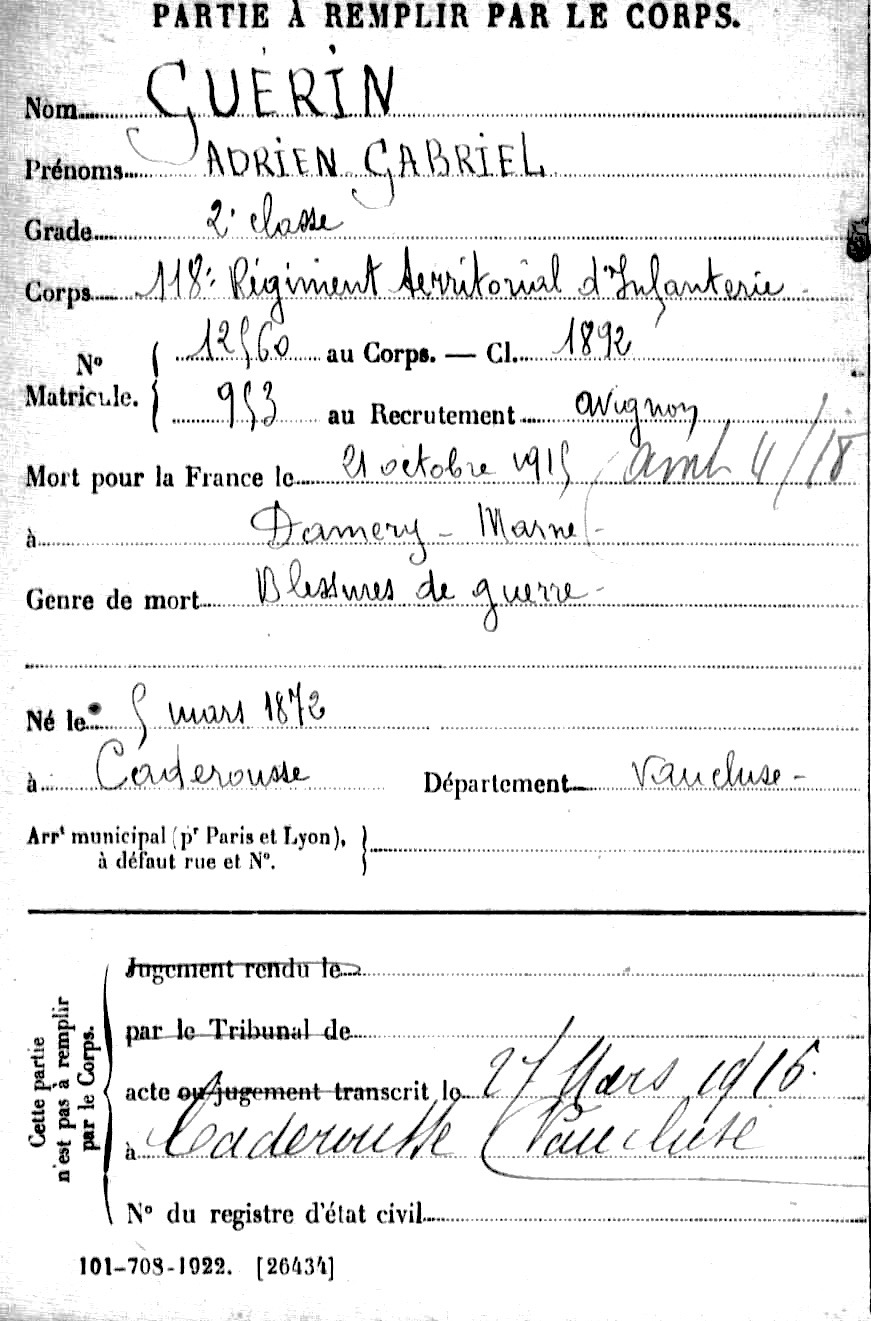 PARTIE À REMPLIR PAR LE CORPS.
Nom GUÉRIN
Prénoms ADRIEN GABRIEL
Grade 2e classe
Corps 118e Régiment territorial d'Infanterie -
No Matricule. { 12560 au Corps. — Cl. 1892
953 au Recrutement avignon
Mort pour la France le 21 octobre 1915 (amb 4/18
à Damery - Marne -
Genre de mort Blessures de guerre -
Né le 5 mars 1872
à Caderousse Département Vaucluse -
Arrt municipal (pr Paris et Lyon),
à défaut rue et No.
Cette partie
n'est pas à remplir
par le Corps.
Jugement rendu le
par le Tribunal de
acte ou jugement transcrit le 27 Mars 1916.
à Caderousse (Vaucluse
No du registre d'état civil
101-708-1922. [26434]